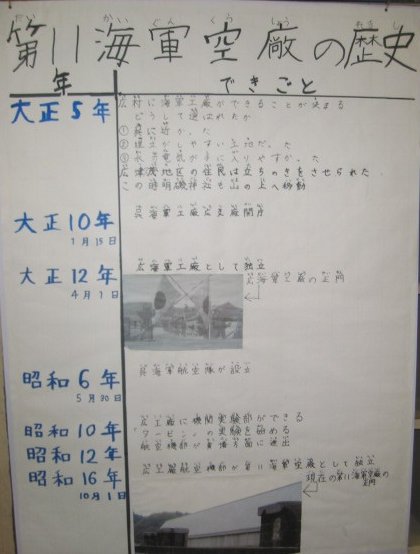 第11海軍空廠の歴史
年
できごと
大正5年
広村に海軍工廠ができることが決まる
どうして選ばれたか
①呉に近かった
②埋立がしやすい土地だった
③水や電気が手に入りやすかった
広津茂地区の住民は立ちのきをさせられた
この時明磯神社も山の上へ移動
大正10年
1月15日
呉海軍工廠広支廠開庁
大正12年
4月1日
広海軍工廠として独立
広海軍工廠の正門
昭和6年
5月30日
呉海軍航空隊が設立
昭和10年
広工廠に機関実験部ができる
タービンの実験を始める
昭和12年
航空機部が黄海方面に進出
昭和16年
10月1日
広工廠航空機部が第11海軍空廠として独立
現在の第11海軍空廠の
正門